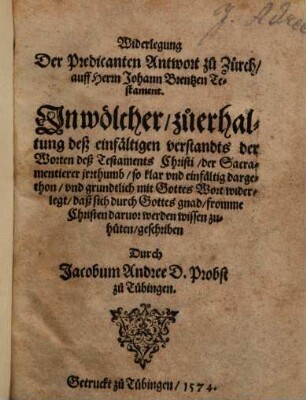 J. Andree
Widerlegung
Der Predicanten Antwort zů Zürch/
auff Herrn Johann Brentzen Te-
stament.
Inwölcher/zůerhal-
tung deß einfältigen verstandts der
Worten deß Testaments Christi/der Sacra-
mentierer jrrthumb/so klar vnd einfältig darge-
thon/vnd gruntlich mit Gottes Wort wider-
legt/daß sich durch Gottes gnad/fromme
Christen daruor werden wissen zu-
hüten/geschriben
Durch
Jacobum Andree D. Probst
zů Tübingen.
Getruckt zů Tübingen/1574.